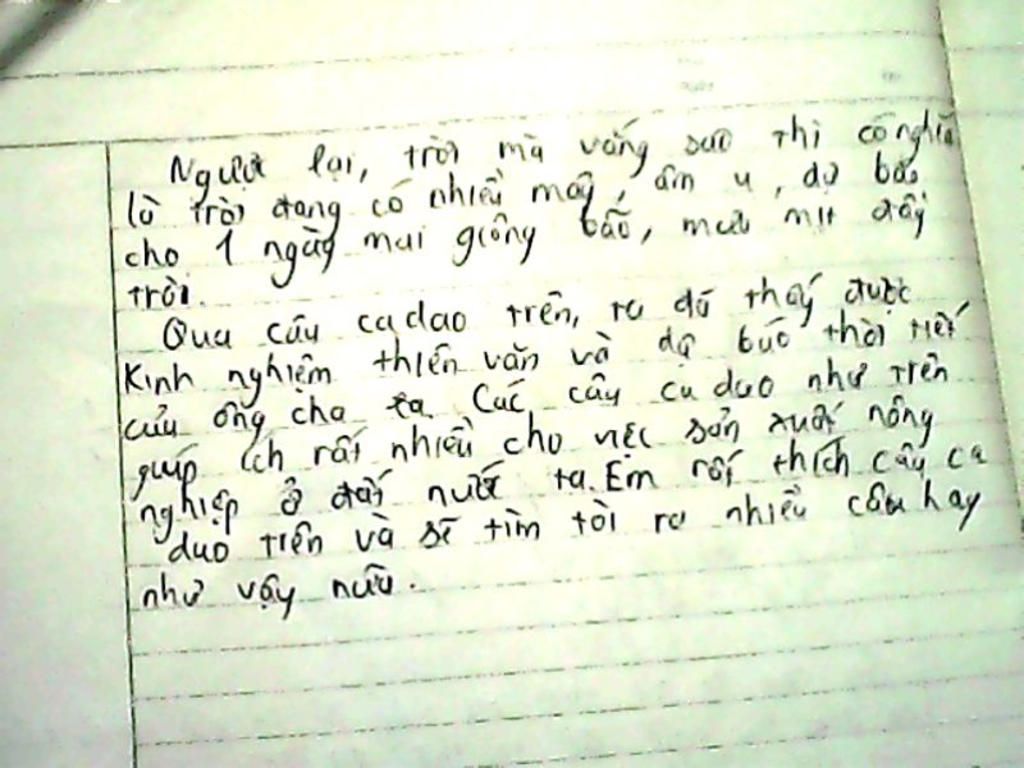 Ngược lại, trời mà vắng sao thì có nghĩa
là trời đang có nhiều mây, âm u, dự báo
cho 1 ngày mai giông bão, mưa mịt đầy
trời.
Qua câu ca dao trên, ta đã thấy được
kinh nghiệm thiên văn và dự báo thời tiết
của ông cha ta. Các câu ca dao như trên
giúp ích rất nhiều cho việc sản xuất nông
nghiệp ở đất nước ta. Em rất thích câu ca
dao trên và sẽ tìm tòi ra nhiều câu hay
như vậy nữa.